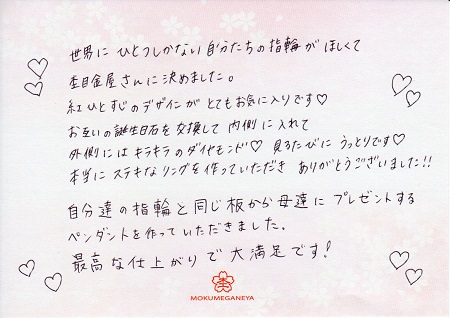 世界に ひとつしかない 自分たちの 指輪が ほしくて
杢目金屋さんに決めました。
紅ひとすじのデザインが とてもお気に入りです♡
お互いの誕生日石を交換して 内側に入れて
外側にはキラキラのダイヤモンド♡ 見るたびに うっとりです♡
本当に ステキなリングを作っていただき ありがとうございました!!
自分達の指輪と同じ板から母達にプレゼントする
ペンダントを作っていただきました。
最高な仕上がりで大満足です!
杢
MOKUMEGANEYA